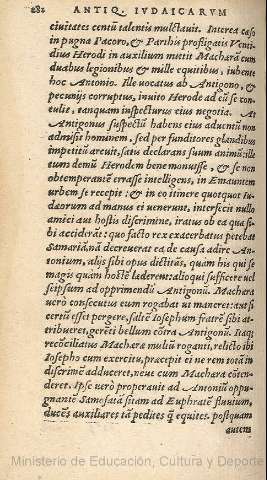 282 ANTIQ. IVDAICARVM
ciuitates centū talentis mulctauit. Interea cæso
in pugna Pacoro, & Parthis profligatis Venti-
dius Herodi in auxilium mittit Macharā cum
duabus legionibus & mille equitibus, iubente
hoc Antonio. Ille vocatus ab Antigono, &
pecunijs corruptus, inuito Herode ad eū se con-
tulit, tanquam inspecturus eius negotia. At
Antigonus suspectū habens eius aduentū non
admisit hominem, sed per funditores glandibus
impetitū arcuit, satis declarans suum animū: ille
tum demū Herodem bene monuisse, & se non
obtemperantē errasse intelligens, in Emauntem
vrbem se recepit: & in eo itinere quotquot Iu-
dæorum ad manus ei venerunt, interfecit nullo
amici aut hostis discrimine, iratus ob ea quæ si-
bi acciderāt: quo facto rex exacerbatus petebat
Samariā, nā decreuerat ea de causa adire An-
tonium, alijs sibi opus dictitās, quàm his qui se
magis quàm hostē læderent: alioqui sufficere vel
seipsum ad opprimendū Antigonū. Machæra
verò consecutus eum rogabat vt maneret: aut si
certū esset pergere, saltē Iosephum fratrē sibi at-
tribueret, gerēti bellum cōtra Antigonū. Itaq;
recōciliatus Machæræ multū roganti, relicto ibi
Iosepho cum exercitu, præcepit ei ne rem totā in
discrimē adduceret, neue cum Machæra cōten-
deret. Ipse verò properauit ad Antoniū oppu-
gnantē Samosatā sitam ad Euphratē fluuium,
ducēs auxiliares tā pedites q̃ equites. postquam
autem
Ministerio de Educación, Cultura y Deporte